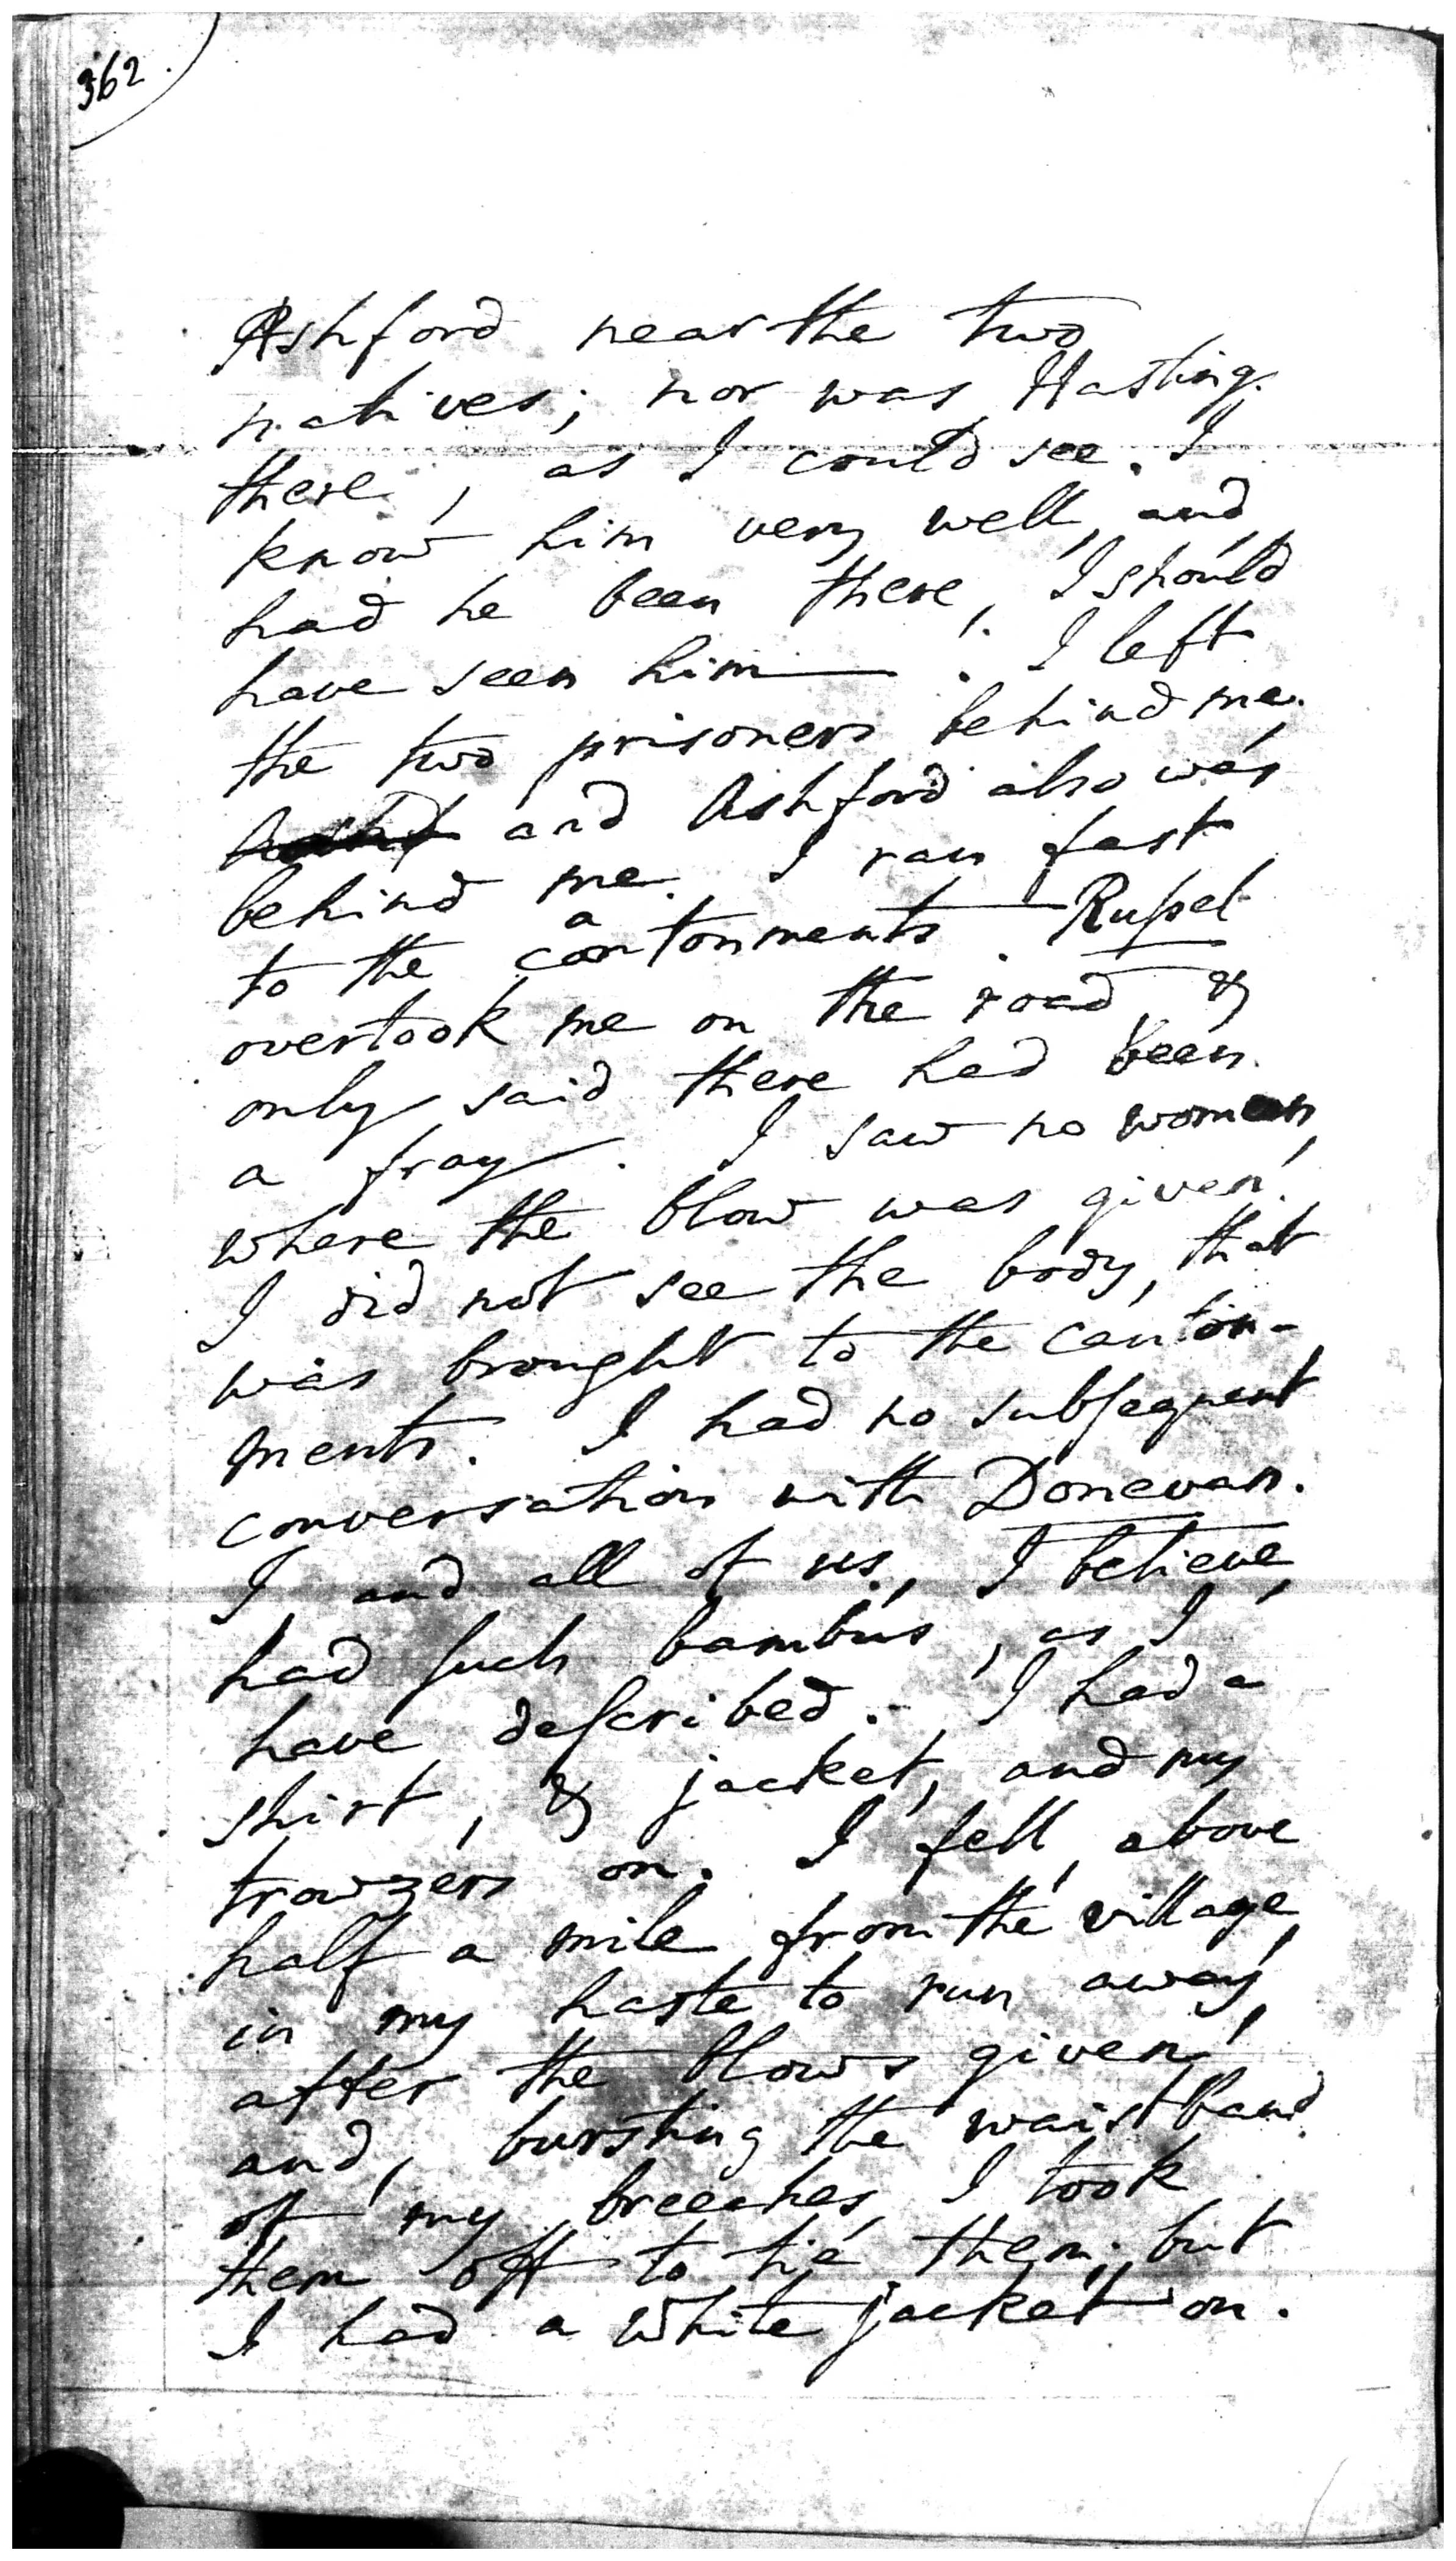 362.
Ashford near the two
natives; nor was Hasting
there, as I could see. I
know him very well, and,
had he been there, I should
have seen him. I left
the two prisoners behind me,
and Ashford also was
behind me. I ran fast
a
to the contonments. Ruſsel
overtook me on the road, &
only said there had been
a fray. I saw no women,
where the blow was given.
I did not see the body, that
was brought to the canton-
ments. I had no subſequent
conversation with Donevan.
I and all of us, I believe,
had ſuch bambus, as I
have deſcribed. I had a
shirt, & jacket, and my
trowzers on. I fell, above
half a mile from the village,
in my haste to run away,
after the blows given,
and, bursting the waistband
of my breeches, I took
them off to tie them; but
I had a white jacket on.